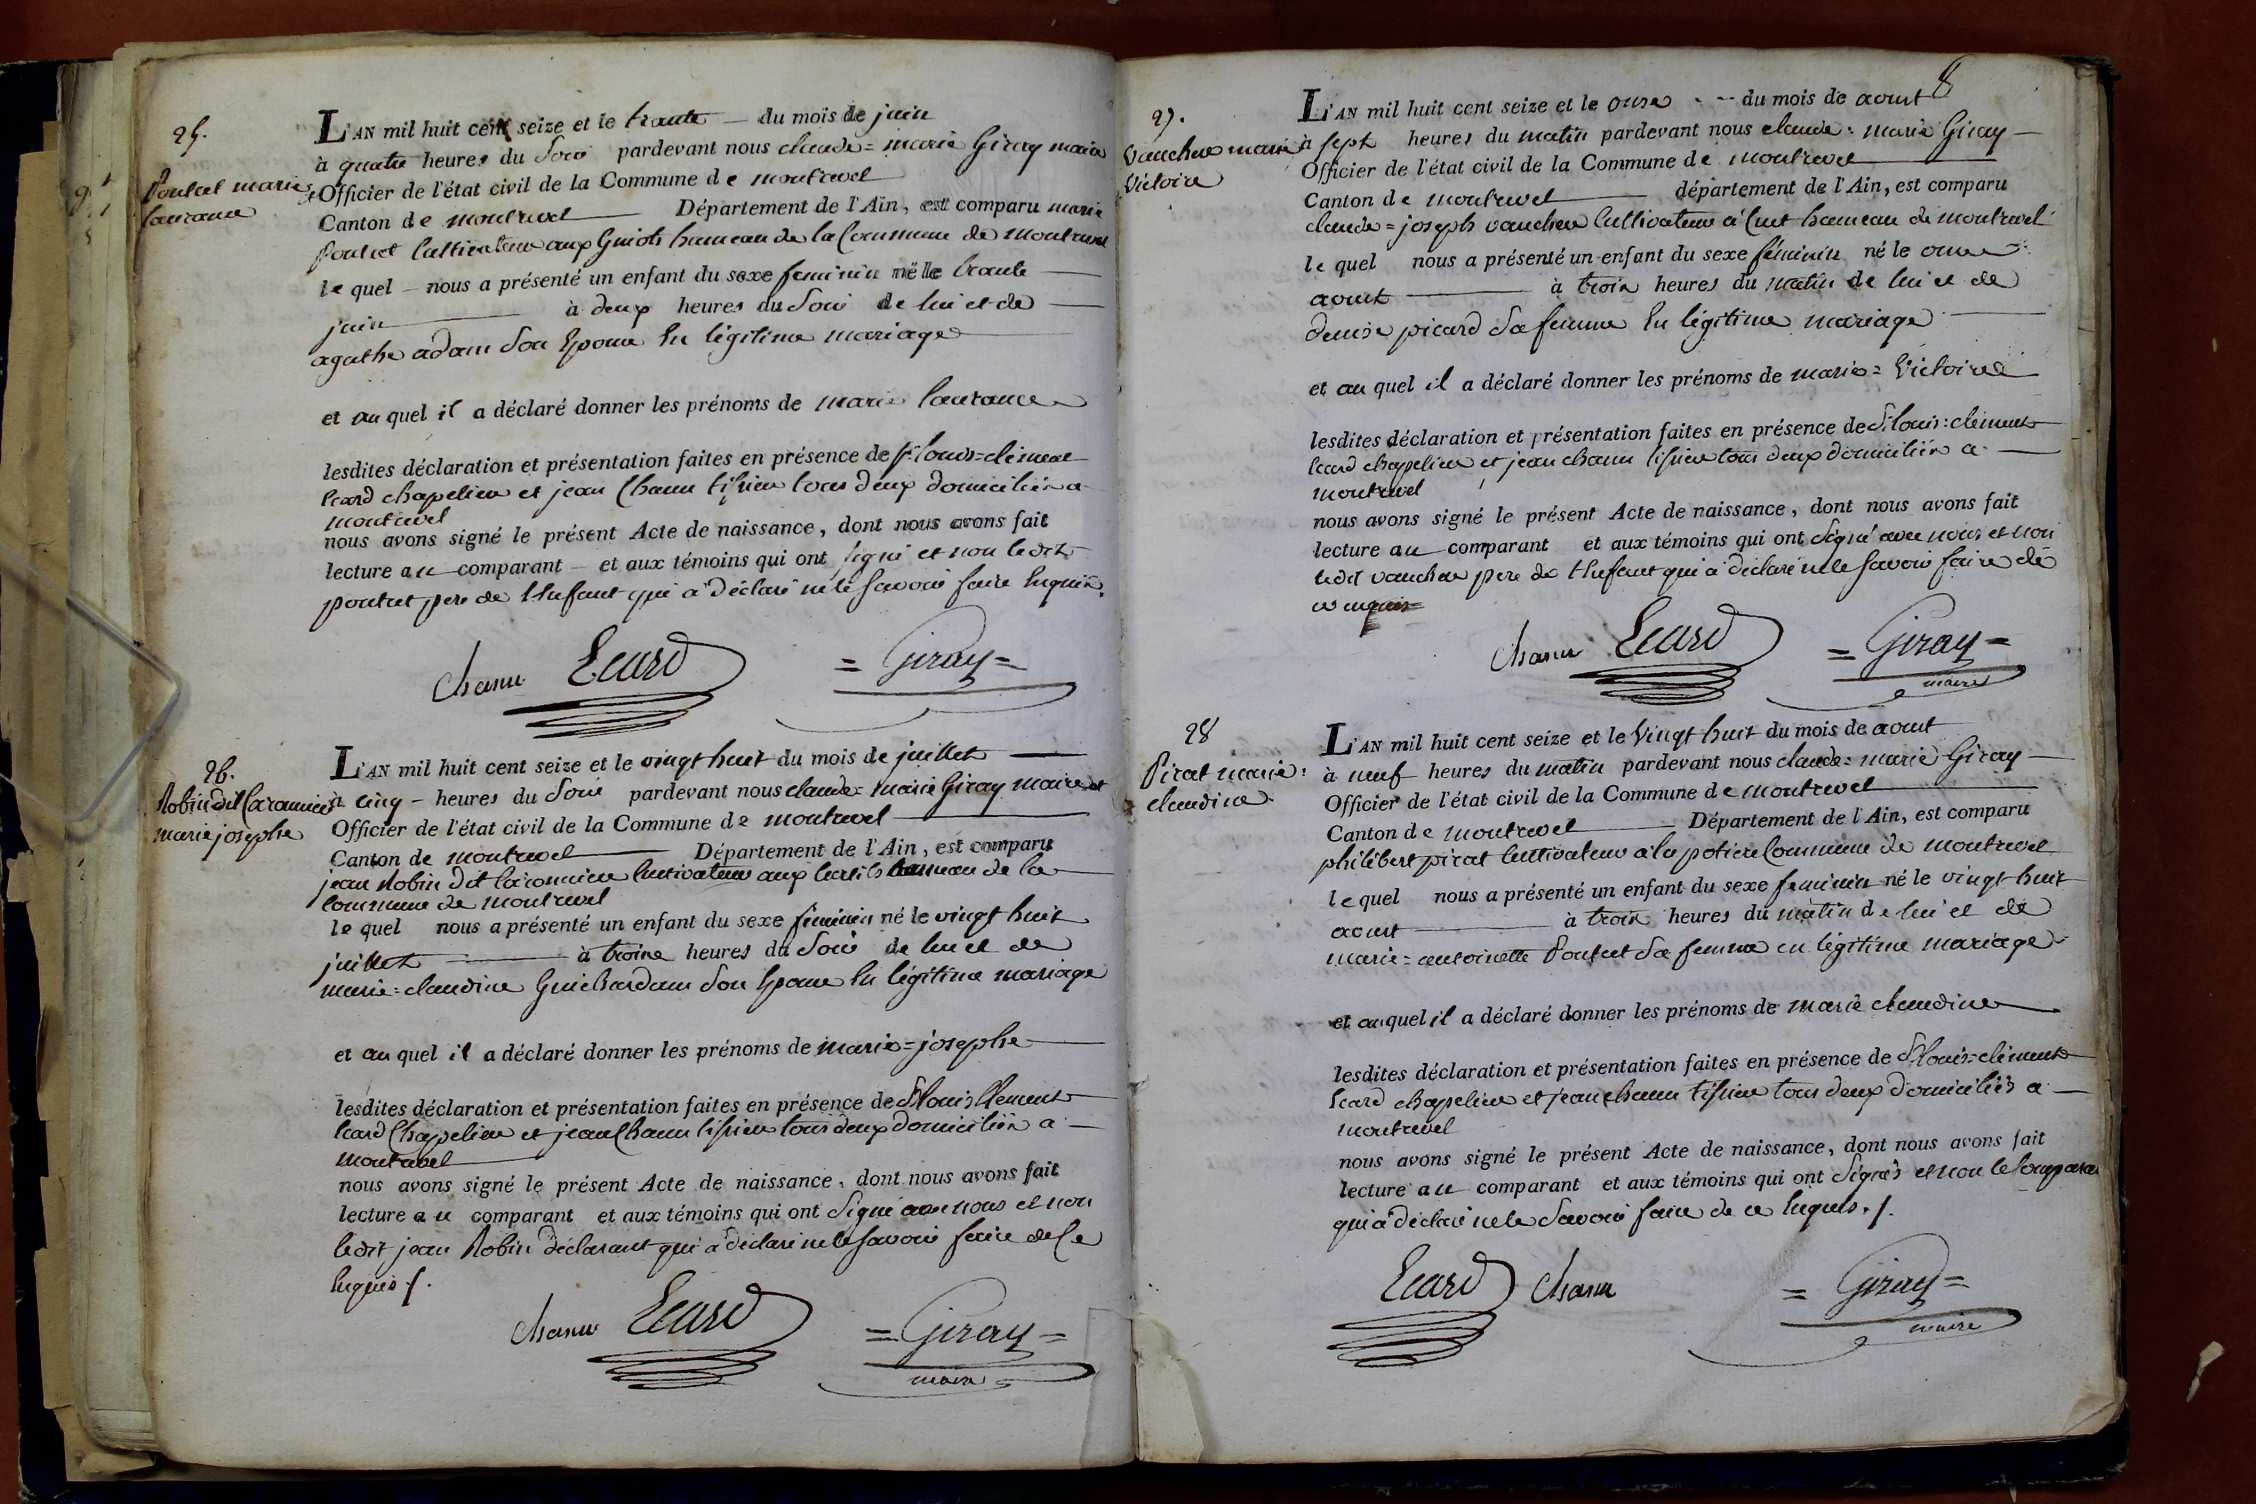 25.
Poncet marie
laurance
L'AN mil huit cent seize et le trante — du mois de juin
à quatre heures du Soir pardevant nous claude = marie Giray maire
et Officier de l'état civil de la Commune de montrevel
Canton de montrevel Département de l'Ain, est comparu marie
Poncet Cultivateur aux Guiots hameau de la Commune de Montrevel
le quel nous a présenté un enfant du sexe feminin né le trante
juin à deux heures du Soir de lui et de
agathe adam Son Epouse En légitime mariage
et au quel il a déclaré donner les prénoms de marie laurance
lesdites déclaration et présentation faites en présence de Sr louis=clément
Ecard chapelier et jean Chanu tissier tous deux domiciliés a
montrevel
nous avons signé le présent Acte de naissance, dont nous avons fait
lecture au comparant et aux témoins qui ont signé et non ledit
poncet pere de l'Enfant qui a déclaré ne le Savoir faire Enquis.
chanu Ecard = Giray =
26.
Robin dit Caronnier
marie josephe
L'AN mil huit cent seize et le vingt huit du mois de juillet
à cinq heures du Soir pardevant nous claude = marie Giray maire et
Officier de l'état civil de la Commune de montrevel
Canton de montrevel Département de l'Ain, est comparu
jean Robin dit Caronnier Cultivateur aux hameau de la
Commune de montrevel
le quel nous a présenté un enfant du sexe féminin né le vingt huit
juillet à troine heures du Soir de lui et de
marie=claudine Guichardam Son Epouse En légitime mariage
et au quel il a déclaré donner les prénoms de marie=josephe
lesdites déclaration et présentation faites en présence de Sr louis Clement
Ecard Chapelier et jean Chanu tissier tous deux domiciliés a
montrevel
nous avons signé le présent Acte de naissance, dont nous avons fait
lecture au comparant et aux témoins qui ont Signé avec nous et non
ledit jean Robin déclarant qui a déclaré ne le Savoir faire de Ce
Enquis ./.
chanu Ecard = Giray =
maire
8
27.
Vaucher marie
Victoire
L'AN mil huit cent seize et le onze du mois de aout
à sept heures du matin pardevant nous claude = marie Giray
Officier de l'état civil de la Commune de montrevel
Canton de montrevel département de l'Ain, est comparu
claude=joseph vaucher Cultivateur à Cuet hameau de montrevel
le quel nous a présenté un enfant du sexe féminin né le onze
aout à trois heures du matin de lui et de
denise picard Sa femme En légitime mariage
et au quel il a déclaré donner les prénoms de marie=Victoire
lesdites déclaration et présentation faites en présence de Sr louis=clément
Ecard chapelier et jean chanu tissier tous deux domiciliés a
montrevel
nous avons signé le présent Acte de naissance, dont nous avons fait
lecture au comparant et aux témoins qui ont Signé avec nous et non
ledit vaucher pere de l'Enfant qui a déclaré ne le Savoir faire de
ce enquis
chanu Ecard = Giray =
maire
28
Pirat marie=
claudine
L'AN mil huit cent seize et le Vingt huit du mois de aout
à neuf heures du matin pardevant nous claude=marie Giray
Officier de l'état civil de la Commune de montrevel
Canton de montrevel Département de l'Ain, est comparu
philibert pirat Cultivateur a la potiere Commune de montrevel
le quel nous a présenté un enfant du sexe feminin né le vingt huit
aout à trois heures du matin de lui et de
marie=antoinette Poncet Sa femme en légitime mariage
et au quel il a déclaré donner les prénoms de marie claudine
lesdites déclaration et présentation faites en présence de Sr louis=clément
Ecard chapelier et jean chanu tissier tous deux domiciliés a
montrevel
nous avons signé le présent Acte de naissance, dont nous avons fait
lecture au comparant et aux témoins qui ont Signés et non le Comparant
qui a déclaré ne le Savoir faire de ce Enquis ./.
Ecard chanu = Giray =
maire